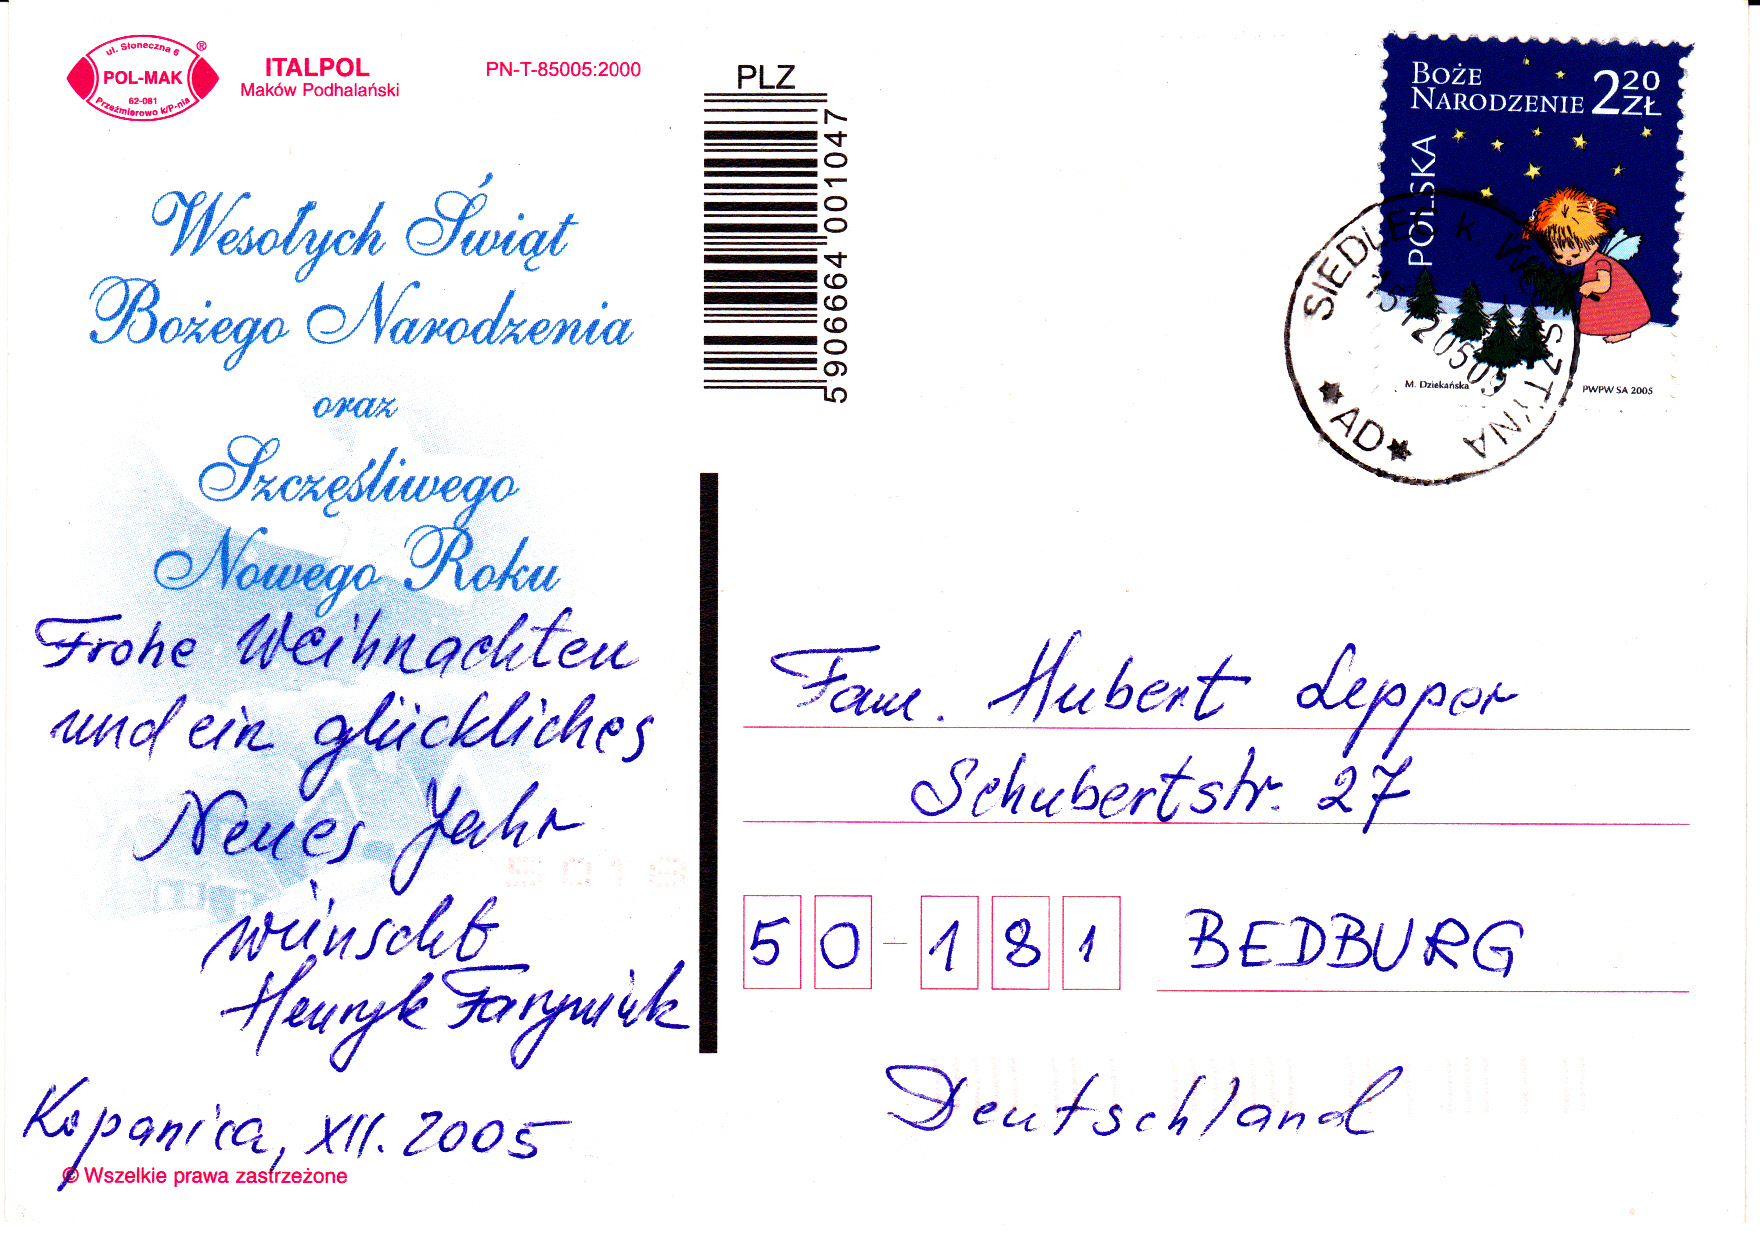 ul. Słoneczna 6
®
POL-MAK
62-081
Przeźmierowo k/P-nia
ITALPOL
Maków Podhalański
PN-T-85005:2000
PLZ
5906664 001047
BOŻE
NARODZENIE
220 ZŁ
POLSKA
M. Dziekańska
PWPW SA 2005
SIEDLEC k. WOLSZTYNA
AD
Wesołych Świąt
Bożego Narodzenia
oraz
Szczęśliwego
Nowego Roku
Frohe Weihnachten
und ein glückliches
Neues Jahr
wünscht
Henryk
Kopanica, XII. 2005
© Wszelkie prawa zastrzeżone
Fam. Hubert Lepper
Schubertstr. 27
50-181 BEDBURG
Deutschland